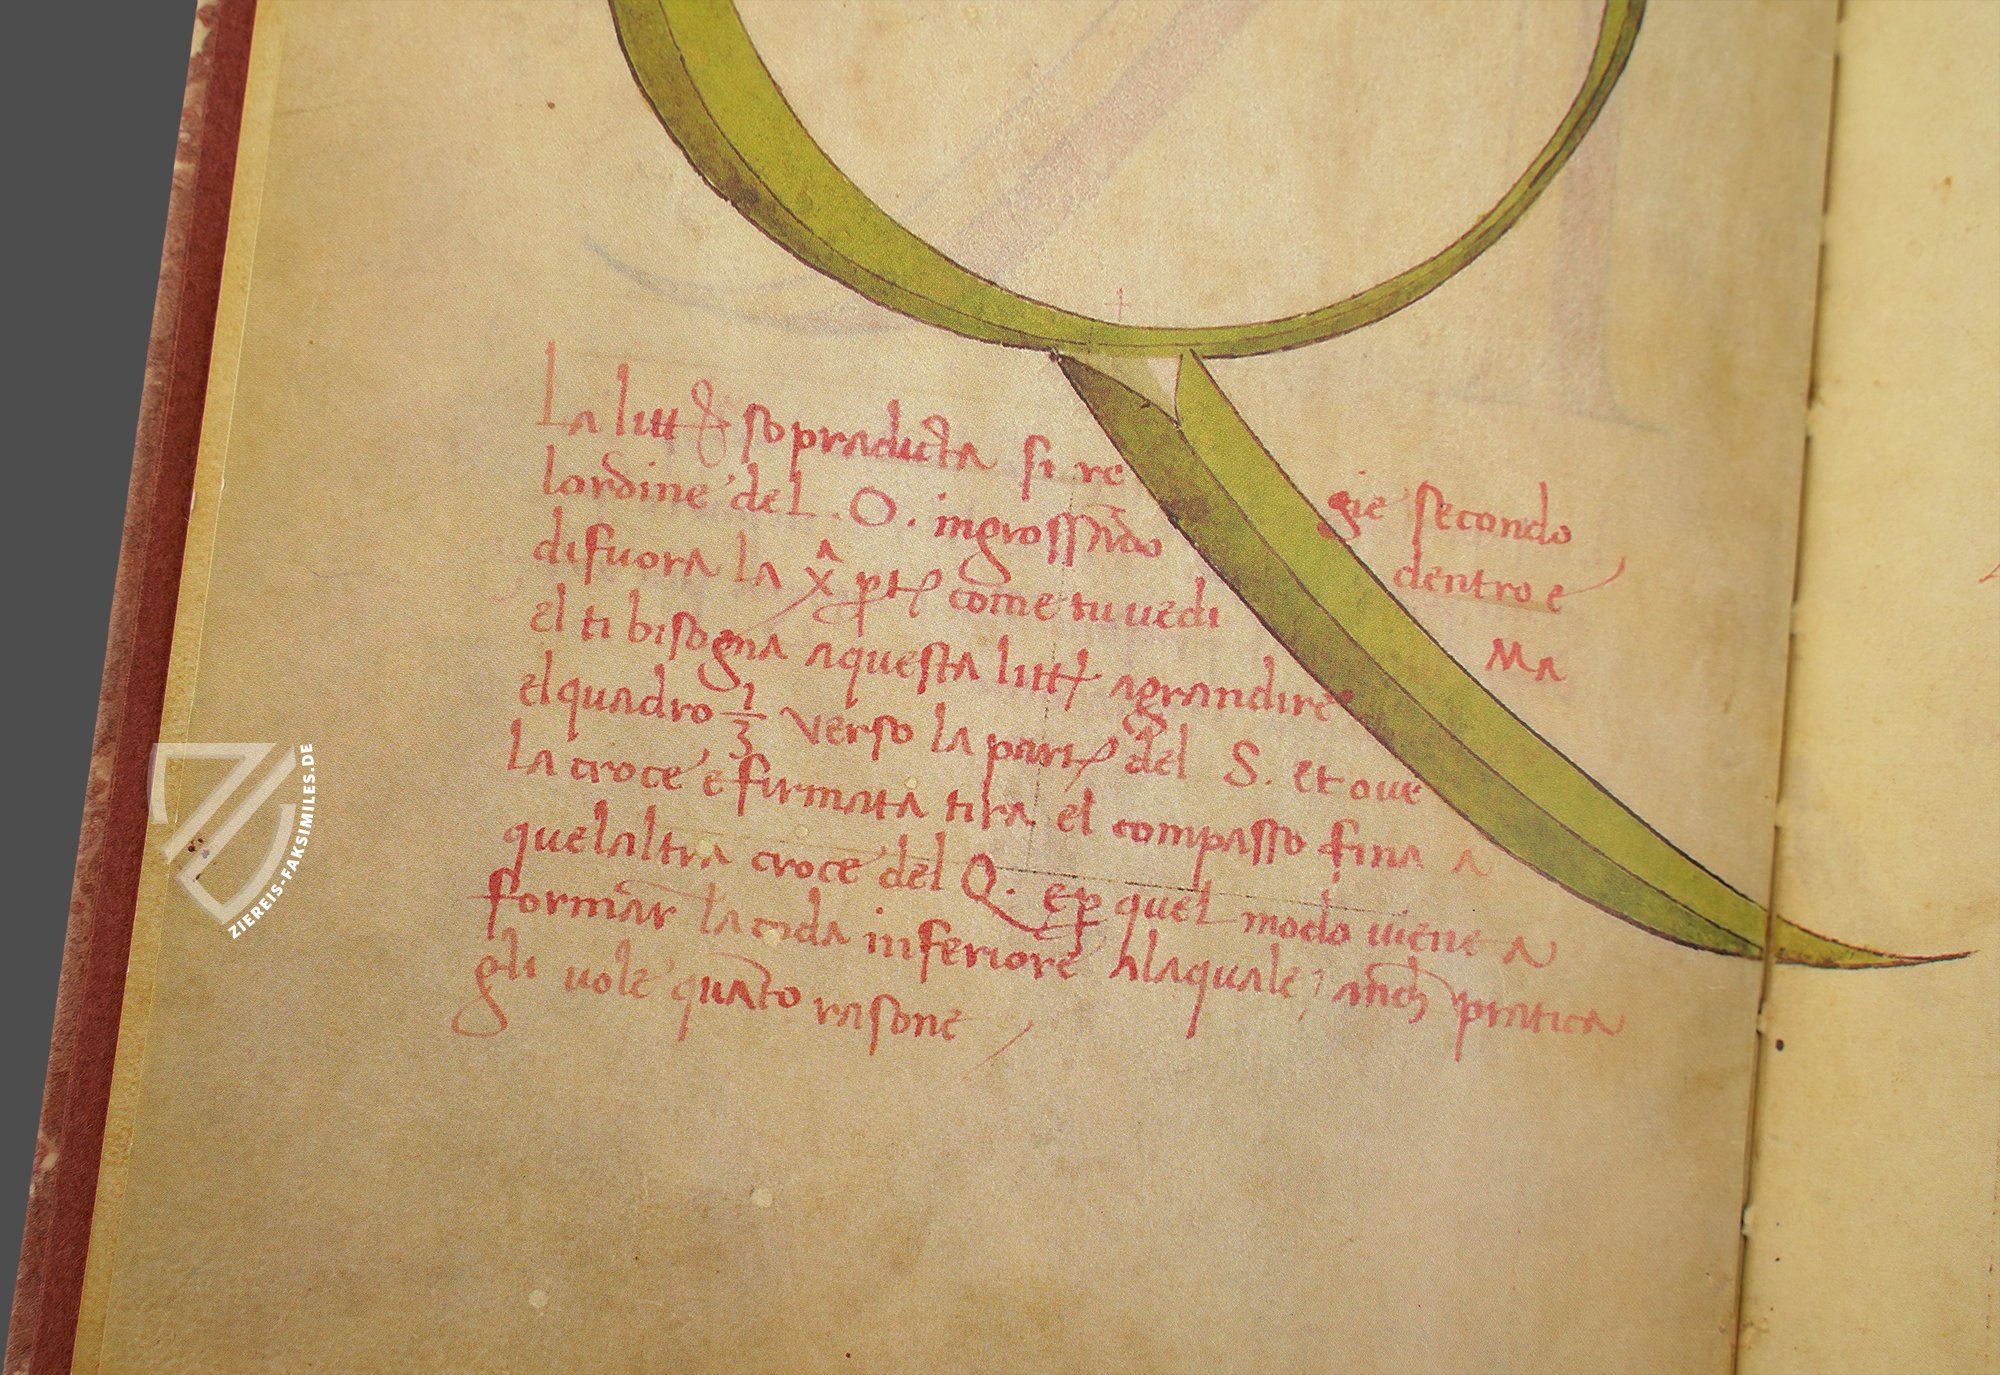 La littr̃ sopradicta si re gie secondo
lordine del . O . ingrossãdo dentro e
difuora la x̂ pt̃ come tu uedi Ma
el ti bisogna aquesta littr̃ agrandire
el quadro 1/3 verso la part̃ del S. et oue
la croce e firmata tira el compasso fina a
quelaltra croce del Q. e p̱ quel modo uiene a
formar la coda inferiore alaquale anch pratica
gli uole quãto rasone
ZIEREIS-FAKSIMILES.DE